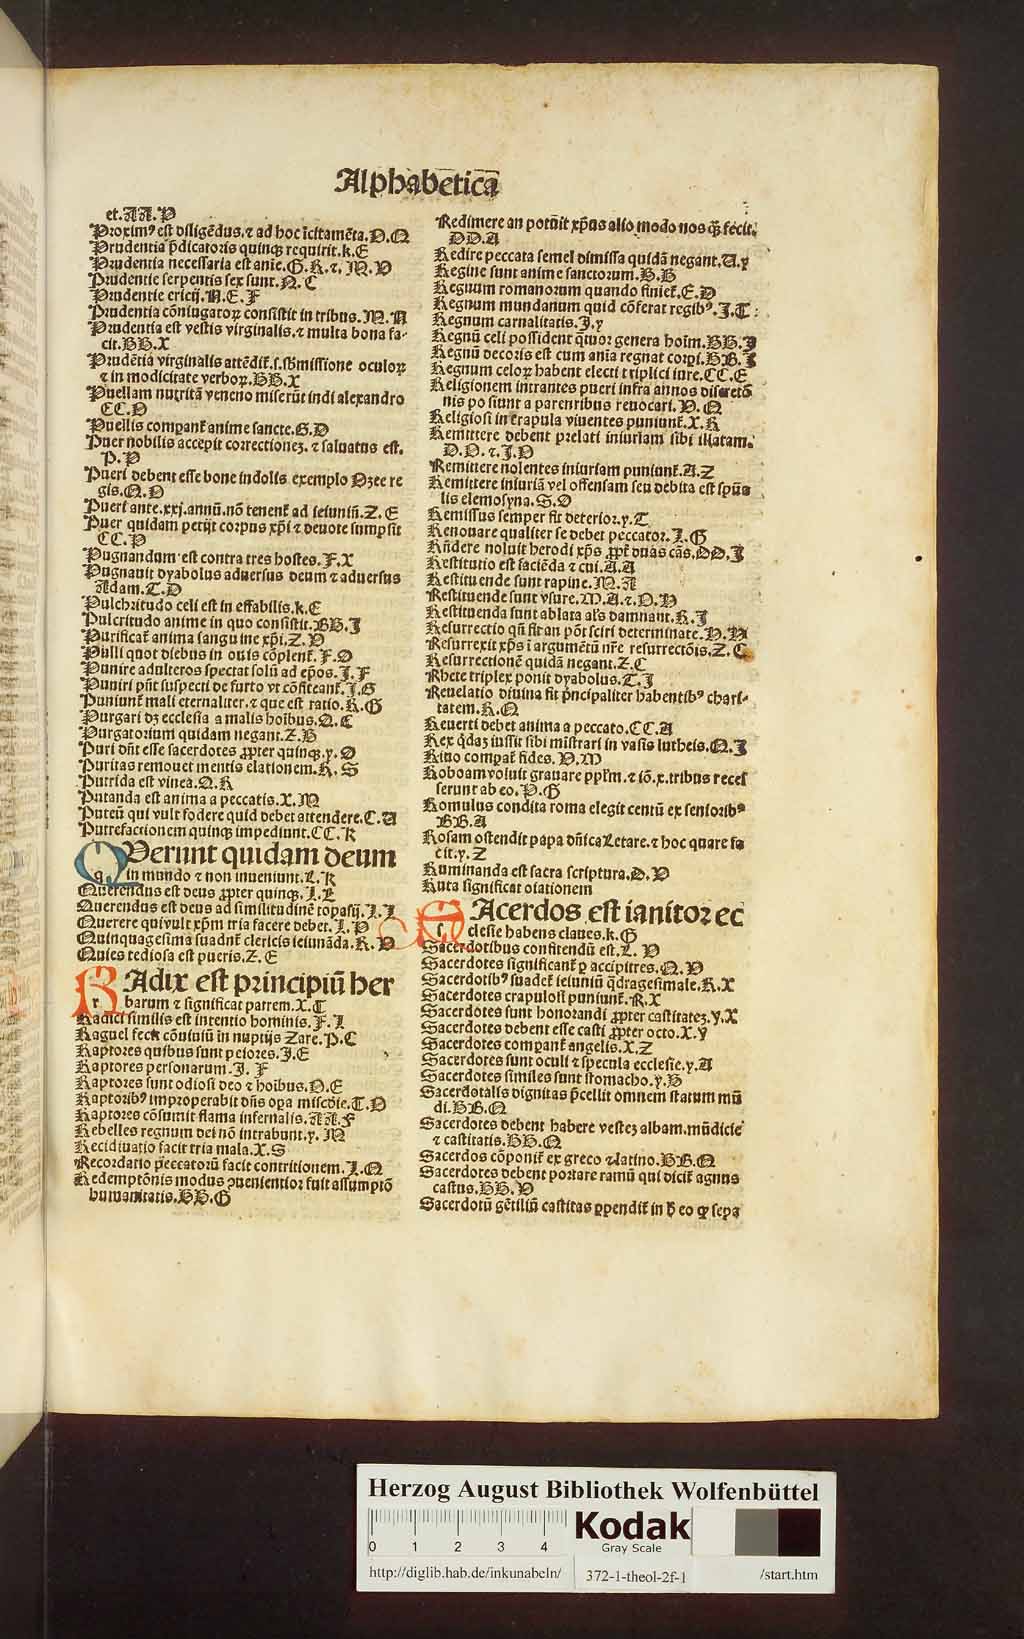 Alphabetica
et.AA.P
Proxim⁹ est diligēdus.⁊ ad hoc īcitamēta.D.Q
Prudentia p̄dicatoris quinqꝫ requirit.k.E
Prudentia necessaria est anīe.G.K.⁊.M.V
Prudentie serpentis sex sunt.N.C
Prudentie ericij.N.E.F
Prudentia cōniugatoꝝ consistit in tribus.M.N
Prudentia est vestis virginalis.⁊ multa bona fa-
cit.BB.X
Prudētia virginalis attēdit̄.s.sb̄missione oculoꝝ
⁊ in modicitate verboꝝ.BB.X
Puellam nutritā veneno miserūt indi alexandro
CC.D
Puellis compant̄ anime sancte.G.D
Puer nobilis accepit correctionez.⁊ saluatus est.
P.P
Pueri debent esse bone indolis exemplo Ozee re
gis.Q.D
Pueri ante.xxj.annū.nō tenent̄ ad ieiuniū.Z.E
Puer quidam petijt corpus xp̄i ⁊ deuote sumpsit
CC.P
Pugnandum est contra tres hostes.F.X
Pugnauit dyabolus aduersus deum ⁊ aduersus
Adam.T.D
Pulchritudo celi est in effabilis.k.C
Pulcritudo anime in quo consistit.BB.J
Purificat̄ anima sanguine xp̄i.Z.V
Pulli quot diebus in ouis cōplent̄.F.O
Punire adulteros spectat solū ad ep̄os.J.F
Puniri pn̄t suspecti de furto vt cōfiteant̄.J.G
Puniunt̄ mali eternaliter.⁊ que est ratio.K.G
Purgari dꝫ ecclesia a malis hoībus.Q.C
Purgatorium quidam negant.Z.B
Puri dn̄t esse sacerdotes ꝓpter quinqꝫ.y.O
Puritas remouet mentis elationem.K.S
Putrida est vinea.Q.K
Putanda est anima a peccatis.X.M
Puteū qui vult fodere quid debet attendere.C.A
Putrefactionem quinqꝫ impediunt.CC.K
QVerunt quidam deum
q in mundo ⁊ non inueniunt.L.K
Querendus est deus ꝓpter quinqꝫ.J.E
Querendus est deus ad similitudinē topasij.J.J
Querere qui vult xp̄m tria facere debet.J.P
Quinquagesima suadnt̄ clericis ieiunāda.K.V
Quies tediosa est pueris.Z.E
RAdix est principiū her
r barum ⁊ significat patrem.X.T
Radici similis est intentio hominis.F.J
Raguel fecit cōuiuiū in nuptijs Zare.P.C
Raptores quibus sunt peiores.J.E
Raptores personarum.J.F
Raptores sunt odiosi deo ⁊ hoībus.D.E
Raptorib⁹ improperabit dn̄s opa misc̄die.T.D
Raptores cōsumit flama infernalis.AA.F
Rebelles regnum dei nō intrabunt.y.M
Recidiuatio facit tria mala.X.S
Recordatio peccatorū facit contritionem.J.Q
Redemptōnis modus ꝯuenientior fuit assumptō
humanitatis.BB.G
Redimere an potuit xp̄us alio modo nos qꝫ fecit.
DD.A
Redire peccata semel dimissa quidā negant.A.y
Regine sunt anime sanctorum.B.B
Regnum romanorum quando finiet̄.E.D
Regnum mundanum quid cōferat regib⁹.J.T
Regnum carnalitatis.J.y
Regnū celi possident q̄tuor genera hoīm.BB.J
Regnū decoris est cum anīa regnat corpī.BB.J
Regnum celoꝝ habent electi triplici iure.CC.E
Religionem intrantes pueri infra annos discretō
nis possunt a parentibus reuocari.V.Q
Religiosi in crapula viuentes puniunt̄.X.K
Remittere debent prelati iniuriam sibi illatam.
D.D.⁊.J.D
Remittere nolentes iniuriam puniunt̄.A.Z
Remittere iniuriā vel offensam seu debita est spūa
lis elemosyna.S.O
Remissus semper fit deterior.y.T
Renouare qualiter se debet peccator.J.G
Rn̄dere noluit herodi xp̄s ꝓpt̄ duas cās.DD.J
Restitutio est faciēda ⁊ cui.A.A
Restituende sunt rapine.M.A
Restituende sunt vsure.M.A.⁊.D.H
Restituenda sunt ablata al's damnant̄.K.J
Resurrectio qn̄ fit an pōt sciri determinate.V.N
Resurrexit xp̄s ī argumētū nr̄e resurrectōis.Z.C
Resurrectionē quidā negant.Z.C
Rhete triplex ponit dyabolus.T.J
Reuelatio diuina fit p̄ncipaliter habentib⁹ chari-
tatem.K.Q
Reuerti debet anima a peccato.CC.A
Rex q̄daꝫ iussit sibi mīstrari in vasis luteis.Q.J
Riuo compat̄ fides.V.M
Roboam voluit grauare pp̄lm.⁊ iō.x.tribus reces
serunt ab eo.P.G
Romulus condita roma elegit centū ex seniorib⁹
BB.A
Rosam ostendit papa dn̄ica Letare.⁊ hoc quare fa
cit.y.Z
Ruminanda est sacra scriptura.D.V
Ruta significat orationem
SAcerdos est ianitor ec
s clesie habens claues.k.G
Sacerdotibus confitendū est.L.V
Sacerdotes significant̄ ꝑ accipitres.Q.V
Sacerdotib⁹ suadet̄ ieiuniū q̄dragesimale.K.X
Sacerdotes crapulosi puniunt̄.K.X
Sacerdotes sunt honorandi ꝓpter castitatez.y.X
Sacerdotes debent esse casti ꝓpter octo.X.y
Sacerdotes compant̄ angelis.X.Z
Sacerdotes sunt oculi ⁊ specula ecclesie.y.A
Sacerdotes similes sunt stomacho.y.B
Sacerdotalis dignitas p̄cellit omnem statum mū
di.BB.Q
Sacerdotes debent habere vestez albam.mūdicie
⁊ castitatis.BB.Q
Sacerdos cōponit̄ ex greco ⁊ latino.BB.Q
Sacerdotes debent portare ramū qui dicit̄ agnus
castus.BB.V
Sacerdotū gētiliū castitas ꝑpendit̄ in h̄ eo qꝫ sepa
Herzog August Bibliothek Wolfenbüttel
0 1 2 3 4
Kodak
Gray Scale
http://diglib.hab.de/inkunabeln/ 372-1-theol-2f-1 /start.htm